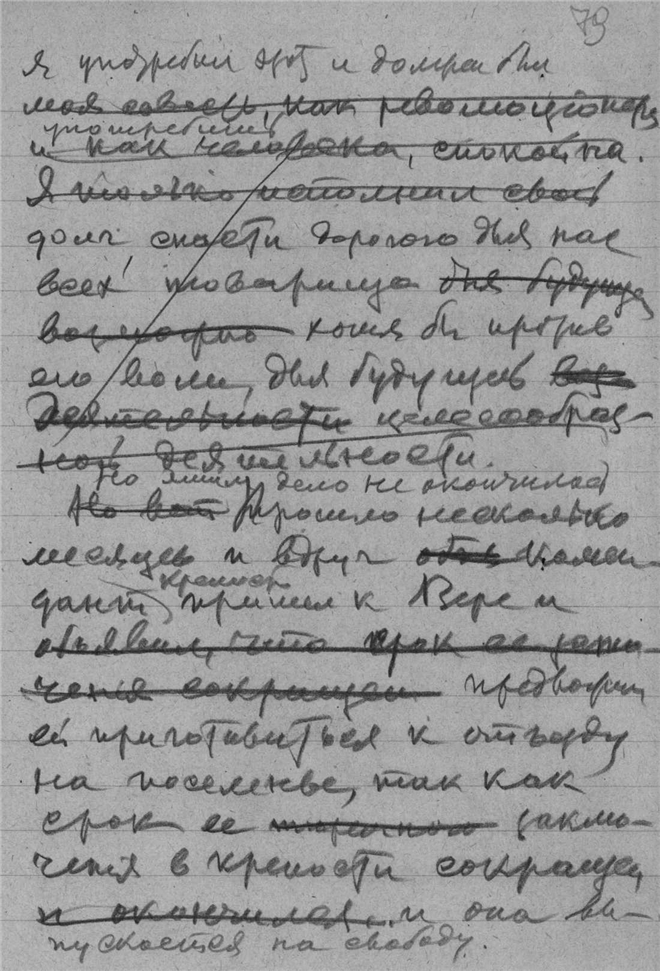 79
я употребил этот и должен был
моя совесть, как революционера
употребить
и как человека, спокойна.
Я только исполнил свой
долг, спасти дорогого для нас
всех товарища для будущей
возможно хотя бы против
его воли, для будущей
деятельности целесообраз-
ной деятельности.
Но этим дело не окончилось
Но вот Прошло несколько
месяцев и вдруг комен-
дант пришел к Вере и
крепости
объявил, что срок ее заклю-
чения сокращен предложил
ей приготовиться к отъезду
на поселенье, так как
срок ее заклю-
ченья в крепости сокращен
и окончился и она вы-
пускается на свободу.